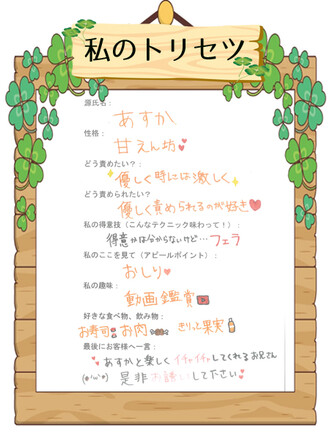 私のトリセツ
源氏名：
あすか
性格：
甘えん坊
どう責めたい？：
優しく時には激しく
どう責められたい？
優しく責められるのが好き
私の得意技（こんなテクニック味わって！）：
得意かは分からないけど…フェラ
私のここを見て（アピールポイント）：
おしり
私の趣味：
動画鑑賞
好きな食べ物、飲み物：
お寿司 お肉 きりっと果実
最後にお客様へ一言：
あすかと楽しくイチャイチャしてくれるお兄さん
是非お誘いして下さい